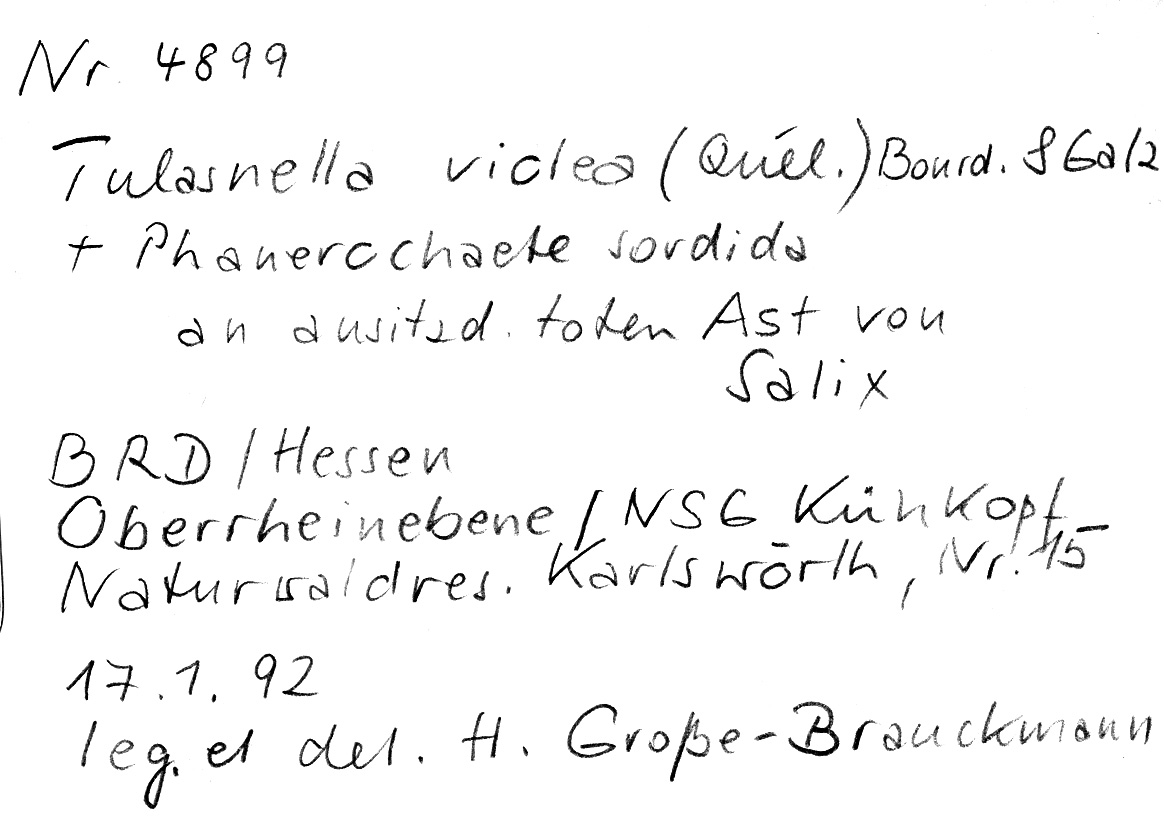 Nr. 4899
Tulasnella violea (Quél.) Bourd. & Galz
+ Phanerochaete sordida
an ansitzd. toten Ast von
Salix
BRD / Hessen
Oberrheinebene / NSG Kühkopf
Naturwaldres. Karlswörth, Nr. 15
17.1.92
leg. et det. H. Große-Brauckmann